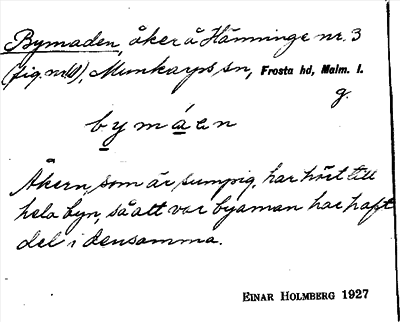 Bymaden, åker å Hänninge nr. 3
(fig. nr 1), Munkarps sn, Frosta hd, Malm. l.
g.
bymáen
Åkern, som är sumpig, har hört till
hela byn, så att var byaman har haft
del i densamma.
EINAR HOLMBERG 1927